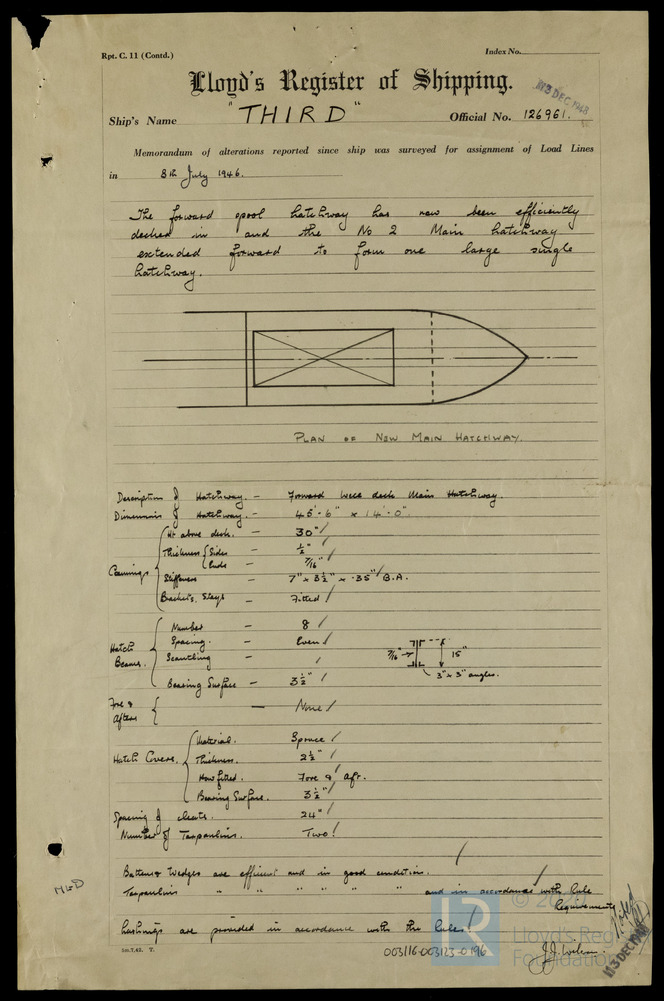 Rpt. C. 11 (Contd.)
Index No.
Lloyd's Register of Shipping.
13 DEC 1948
Ship's Name "THIRD" Official No. 126961.
Memorandum of alterations reported since ship was surveyed for assignment of Load Lines
in 8th July 1946.
The forward spool hatchway has now been efficiently
decked in and the No 2 Main hatchway
extended forward to form one large single
hatchway.
PLAN OF NEW MAIN HATCHWAY.
Description of Hatchway. - Forward Well deck Main Hatchway.
Dimensions of Hatchway. - 45'-6" x 14'-0".
Coamings
Ht above deck. - 30" /
Thickness Sides - ½" /
Ends - 7/16" /
Stiffeners - 7" x 3½" x .35" / B.A.
Brackets, Stays - Fitted /
Hatch Beams.
Number - 8 /
Spacing. - Even /
Scantling - /
7/16" 15"
3" x 3" angles.
Bearing Surface - 3½" /
Fore & Afters - None /
Hatch Covers.
Material. Spruce /
Thickness. 2½" /
How fitted. Fore & Aft. /
Bearing Surface. 3½" /
Spacing of cleats. 24" /
Number of Tarpaulins. Two /
Battens & Wedges are efficient and in good condition. /
Tarpaulins " " " " " " and in accordance with Rule /
Requirements
Lashings are provided in accordance with the Rules /
1m.7,42. T.
003116-003123-0196
J.J. Wilson.
13 DEC 1948
© 2020
LR
Lloyd's Reg
Foundation